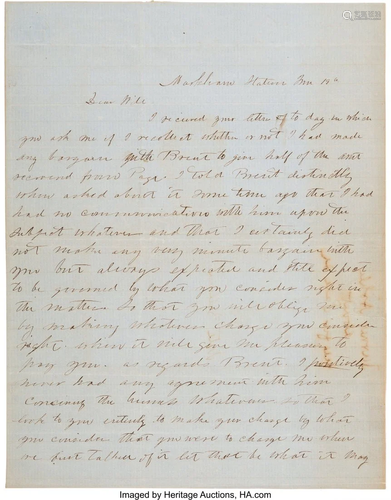 Markham Station
Dear Will
I received your letter of to day in which
you ask me if I recollect whether or not I had made
any bargain with Brent to give half of the
received from Page. I told Brent distinctly
when asked about it some time ago that I had
had no communication with him upon the
subject whatever and that I certainly did
not make any very minute bargain with
you but always expected and still expect
to be governed by what you consider right in
the matter. So that you will oblige me
by making whatever charge you consider
right when it will give me pleasure to
pay you. as regards Brent. I
never had any agreement with him
concerning the whatever so that I
look to you entirely to make your charge by what
you consider that you were to charge me when
we first talked of it let that be what it may
Imaged by Heritage Auctions, HA.com